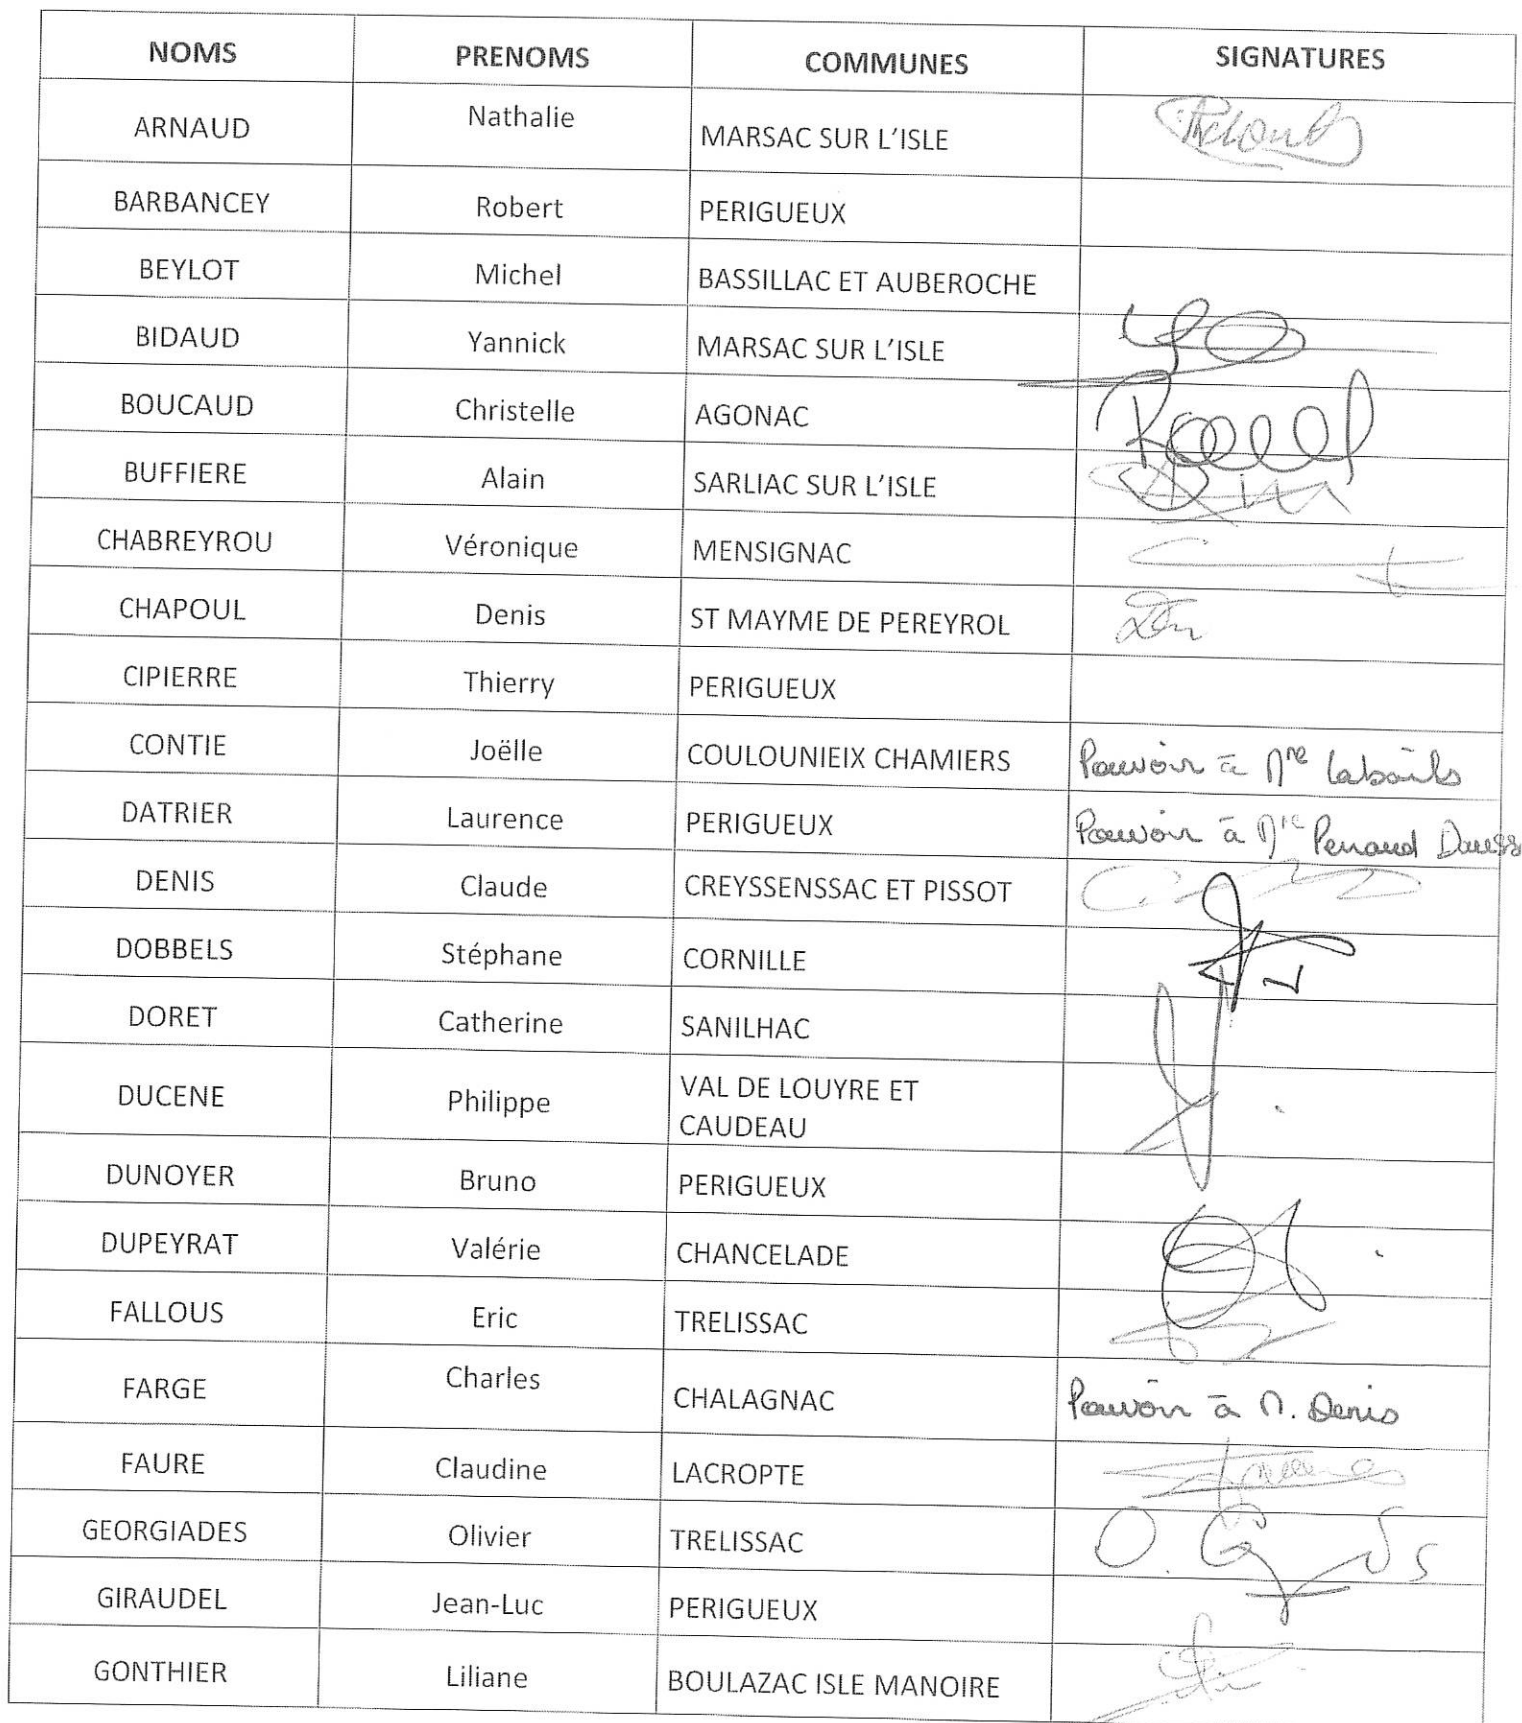 NOMS PRENOMS COMMUNES SIGNATURES
ARNAUD Nathalie MARSAC SUR L'ISLE
BARBANCEY Robert PERIGUEUX
BEYLOT Michel BASSILLAC ET AUBEROCHE
BIDAUD Yannick MARSAC SUR L'ISLE
BOUCAUD Christelle AGONAC
BUFFIERE Alain SARLIAC SUR L'ISLE
CHABREYROU Véronique MENSIGNAC
CHAPOUL Denis ST MAYME DE PEREYROL
CIPIERRE Thierry PERIGUEUX
CONTIE Joëlle COULOUNIEIX CHAMIERS Pouvoir à Mme
DATRIER Laurence PERIGUEUX Pouvoir à Mme
DENIS Claude CREYSSENSSAC ET PISSOT
DOBBELS Stéphane CORNILLE
DORET Catherine SANILHAC
DUCENE Philippe VAL DE LOUYRE ET
CAUDEAU
DUNOYER Bruno PERIGUEUX
DUPEYRAT Valérie CHANCELADE
FALLOUS Eric TRELISSAC
FARGE Charles CHALAGNAC Pouvoir à M. Denis
FAURE Claudine LACROPTE
GEORGIADES Olivier TRELISSAC
GIRAUDEL Jean-Luc PERIGUEUX
GONTHIER Liliane BOULAZAC ISLE MANOIRE